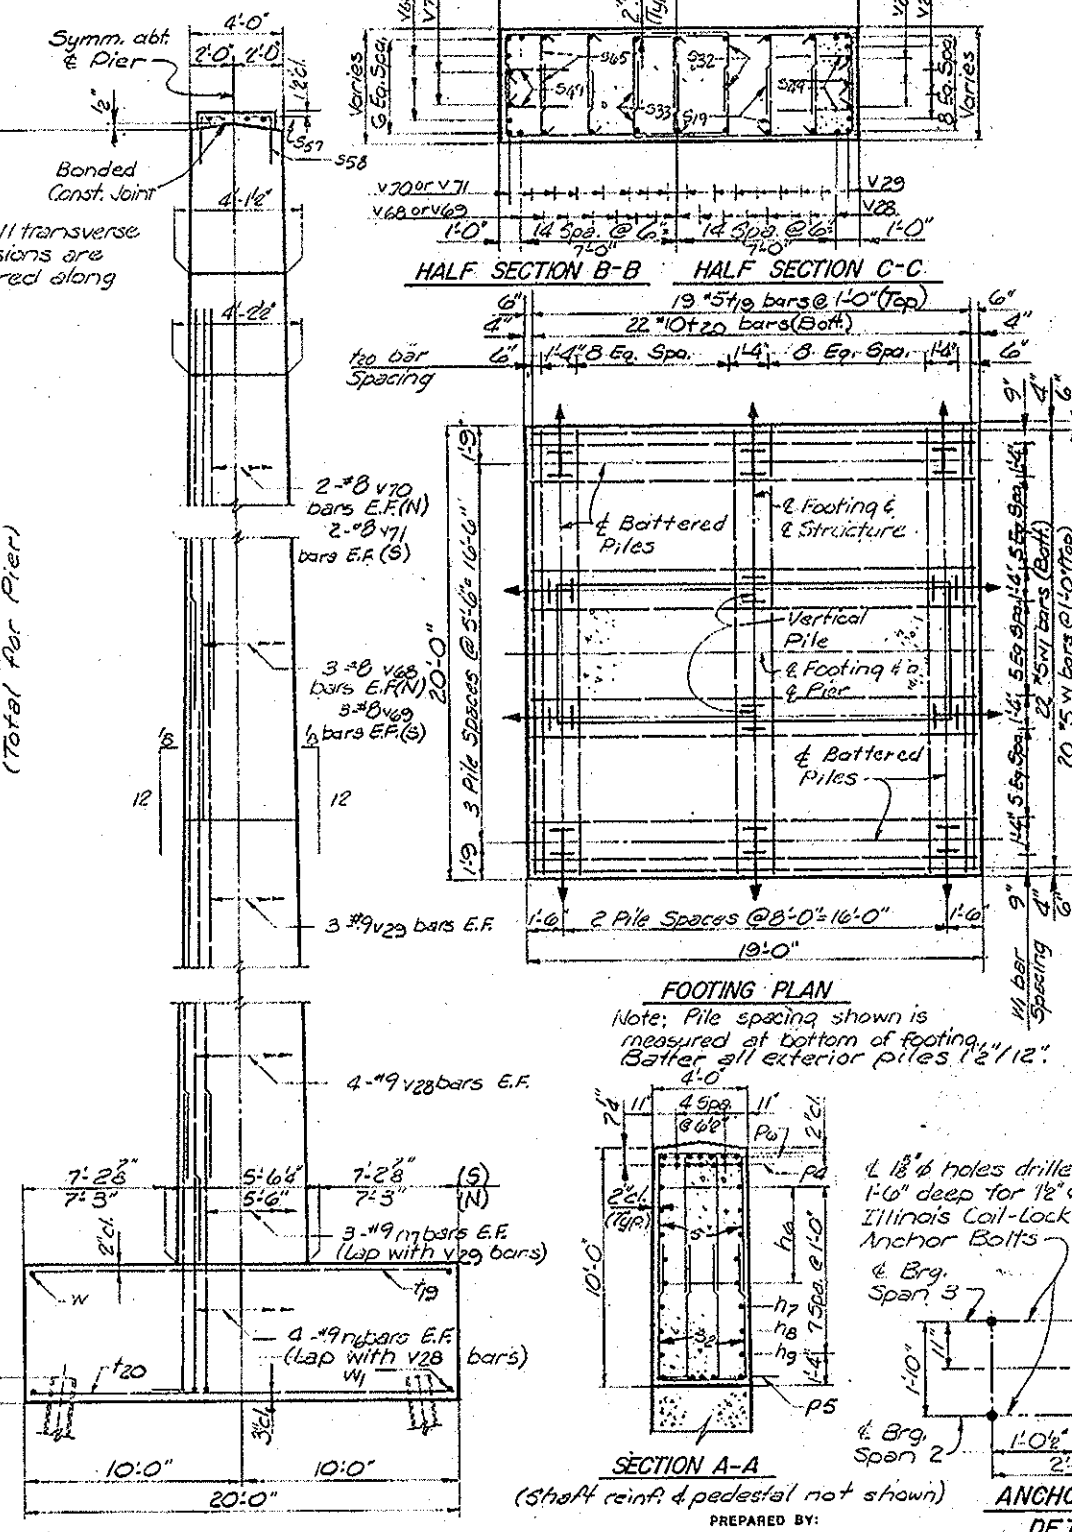 4'-0"
Symm. abt.
℄ Pier
2'-0" 2'-0"
1½"cl.
½"
s57
s58
Bonded
Const. Joint
4'-1½"
ll transverse
sions are
red along
4'-2½"
2-#8 v70
bars E.F.(N)
2-#8 v71
bars E.F.(S)
(Total for Pier)
3-#8 v68
bars E.F.(N)
3-#8 v69
bars E.F.(S)
⅛
12
⅛
12
3-#9 v29 bars E.F.
4-#9 v28 bars E.F.
7'-2⅞" 5'-6¼" 7'-2⅞" (S)
7'-3" 5'-6" 7'-3" (N)
2"cl.
3-#9 n7 bars E.F.
(Lap with v29 bars)
w
t19
4-#9 n6 bars E.F.
(Lap with v28 bars)
w1
t20
3"cl.
10'-0" 10'-0"
20'-0"
Varies
6 Eq. Spa.
s65
s32
s49
s33
s19
s29
8 Eq. Spa.
Varies
v70 or v71
v29
v68 or v69
v28
1'-0" 14 Spa. @ 6"= 14 Spa. @ 6"= 1'-0"
7'-0" 7'-0"
HALF SECTION B-B HALF SECTION C-C
6" 19 #5 t19 bars @ 1'-0" (Top) 6"
4" 22 #10 t20 bars (Bott.) 4"
t20 bar
Spacing
6" 1'-4" 8 Eq. Spa. 1'-4" 8 Eq. Spa. 1'-4" 6"
1'-9" 3 Pile Spaces @ 5'-6"= 16'-6" 1'-9"
20'-0"
℄ Battered
Piles
℄ Footing &
℄ Structure
Vertical
Pile
℄ Footing &
℄ Pier
℄ Battered
Piles
9" 1'-4" 5 Eq. Spa. 1'-4" 5 Eq. Spa. 1'-4" 5 Eq. Spa. 1'-4" 9"
4" 22 #5 w1 bars (Bott.) 4"
6" 20 #5 w bars @ 1'-0" (Top) 6"
w1 bar
Spacing
1'-6" 2 Pile Spaces @ 8'-0"= 16'-0" 1'-6"
19'-0"
FOOTING PLAN
Note: Pile spacing shown is
measured at bottom of footing.
Batter all exterior piles 1½"/12".
4'-0"
7¼"
11" 4 Spa. 11"
@ 6½"
2"cl.
p6
p4
2"cl.
(Typ.)
s1
10'-0"
h6
7 Spa. @ 1'-0"
h7
h8
h9
s2
1'-4"
p5
SECTION A-A
(Shaft reinf. & pedestal not shown)
PREPARED BY:
1'-6" deep for 1½"
Illinois Coil-Lock
Anchor Bolts
℄ Brg.
Span 3
11"
1'-10"
℄ Brg.
Span 2
1'-0½"
ANCHO